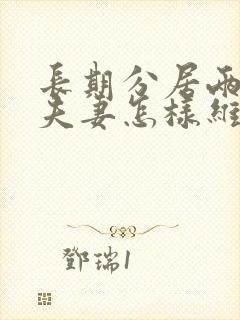 長期分居兩
夫妻怎樣維
鄧瑞1